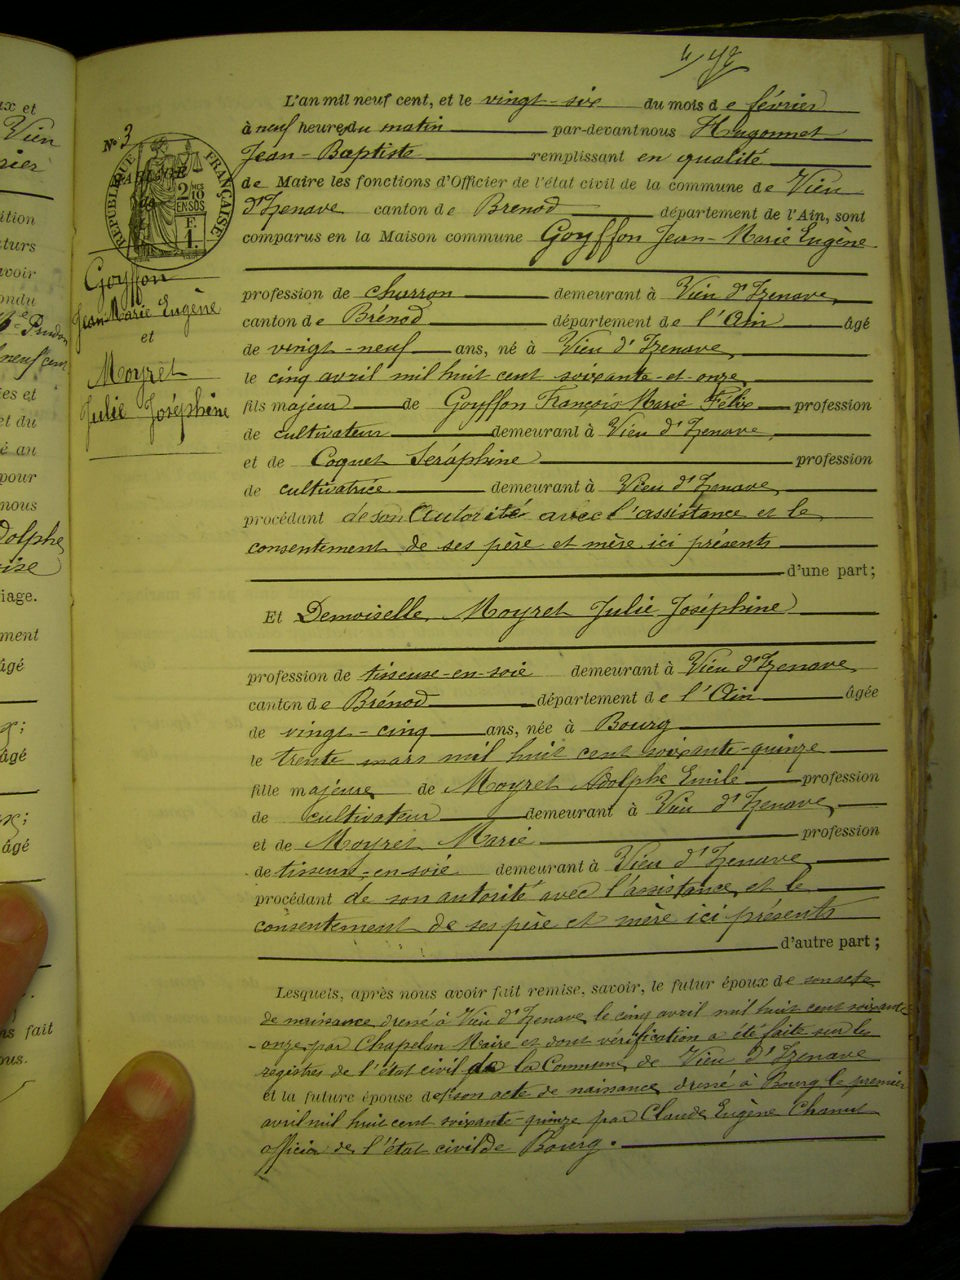 ux et
Vieu
sier
ition
uturs
avoir
ondu
neuf cent
ies et
et du
é au
pour
nous
dolphe
iage.
ment
âgé
âgé
âgé
ns fait
ous.
L'an mil neuf cent, et le vingt-six du mois de février
N° 3
à neuf heures du matin par-devant nous Hugonnet
Jean-Baptiste remplissant en qualité
de Maire les fonctions d'Officier de l'état civil de la commune de Vieu
d'Izenave canton de Brenod département de l'Ain, sont
comparus en la Maison commune Goyffon Jean-Marie Eugène
RÉPUBLIQUE FRANÇAISE
2/10 EN SUS
F.
1.
Goyffon
Jean-Marie Eugène
et
Moyret
Julie Joséphine
profession de charron demeurant à Vieu d'Izenave
canton de Brénod département de l'Ain âgé
de vingt-neuf ans, né à Vieu d'Izenave
le cinq avril mil huit cent soixante-et-onze
fils majeur de Goyffon François Marie Félix profession
de cultivateur demeurant à Vieu d'Izenave
et de Coquet Séraphine profession
de cultivatrice demeurant à Vieu d'Izenave
procédant de son autorité avec l'assistance et le
consentement de ses père et mère ici présents
d'une part;
Et Demoiselle Moyret Julie Joséphine
profession de tisseuse-en-soie demeurant à Vieu d'Izenave
canton de Brénod département de l'Ain âgée
de vingt-cinq ans, née à Bourg
le trente mars mil huit cent soixante-quinze
fille majeure de Moyret Adolphe Emile profession
de cultivateur demeurant à Vieu d'Izenave
et de Moyret Marie profession
de tisseuse-en-soie demeurant à Vieu d'Izenave
procédant de son autorité avec l'assistance et le
consentement de ses père et mère ici présents
d'autre part;
Lesquels, après nous avoir fait remise, savoir, le futur époux de son acte
de naissance dressé à Vieu d'Izenave le cinq avril mil huit cent soixante
-onze par Chapelan Maire et dont vérification a été faite sur les
registres de l'état civil de la Commune de Vieu d'Izenave
et la future épouse de son acte de naissance dressé à Bourg le premier
avril mil huit cent soixante-quinze par Claude Eugène Chanut
officier de l'état civil de Bourg.